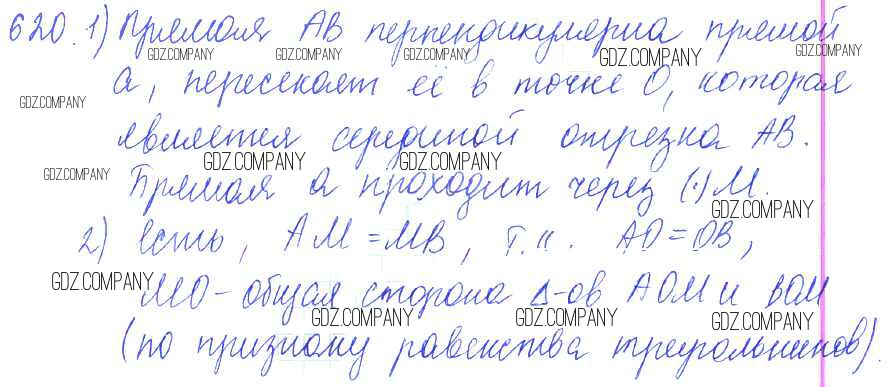 620. 1) Прямая AB перпендикулярна прямой
GDZ.COMPANY GDZ.COMPANY GDZ.COMPANY GDZ.COMPANY GDZ.COMPANY
a, пересекает её в точке O, которая
GDZ.COMPANY
является серединой отрезка AB.
GDZ.COMPANY GDZ.COMPANY GDZ.COMPANY
Прямая a проходит через (·) M.
GDZ.COMPANY
2) Есть, AM = MB, т.к. AO = OB,
GDZ.COMPANY
MO - общая сторона Δ-ов AOM и BOM
GDZ.COMPANY GDZ.COMPANY GDZ.COMPANY
(по признаку равенства треугольников)